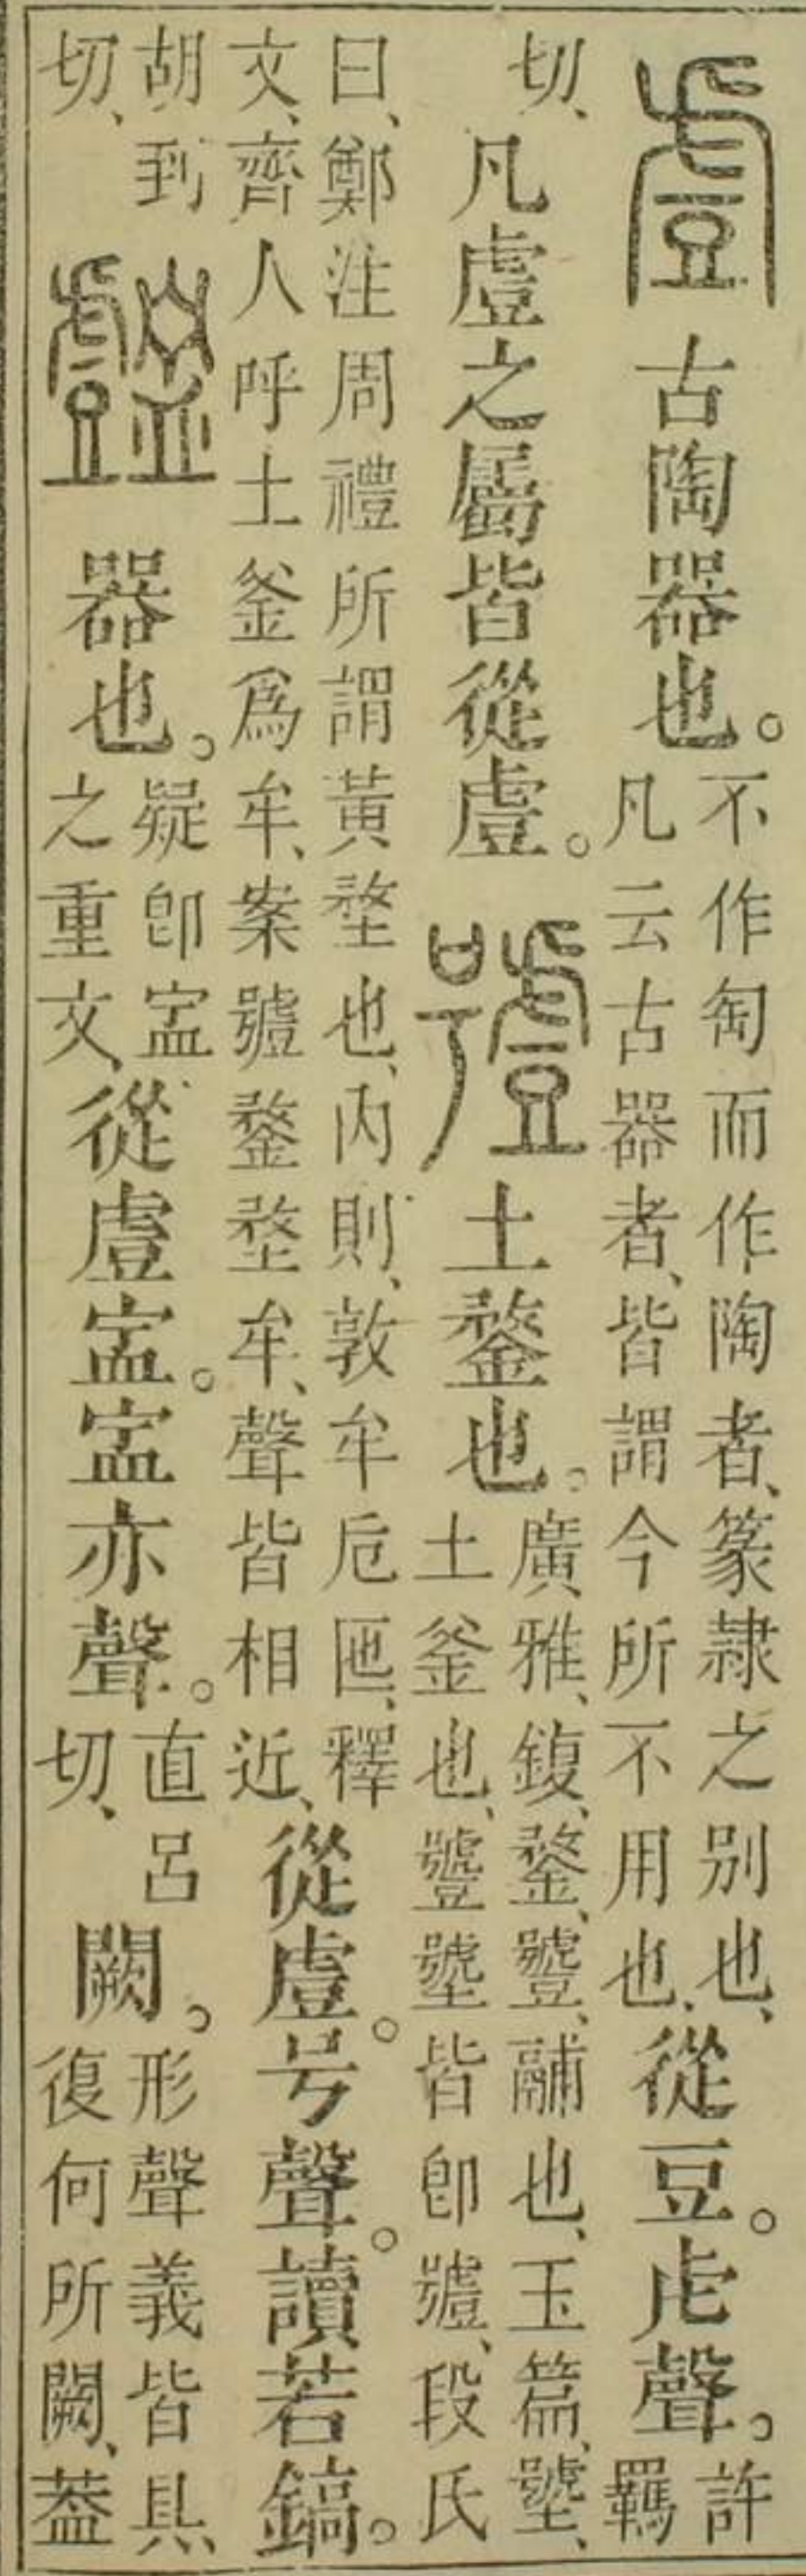 䖒古陶器也。不作匋而作陶者、篆隸之別也、
凡云古器者、皆謂今所不用也、從豆。虍聲。許
羈
切、凡䖒之屬皆從䖒。
土鍪也。廣雅、鍑、鍪、鬴也、玉篇、
土釜也、皆卽段氏
曰、鄭注周禮所謂黃堥也、內則、敦牟卮匜、釋
文、齊人呼土釜爲牟、案鍪堥牟、聲皆相近、從䖒。号聲。讀若鎬。
胡到
切、
器也。疑卽𥁄
之重文、從䖒𥁄。𥁄亦聲。直呂
切、闕。形聲義皆具、
復何所闕、葢